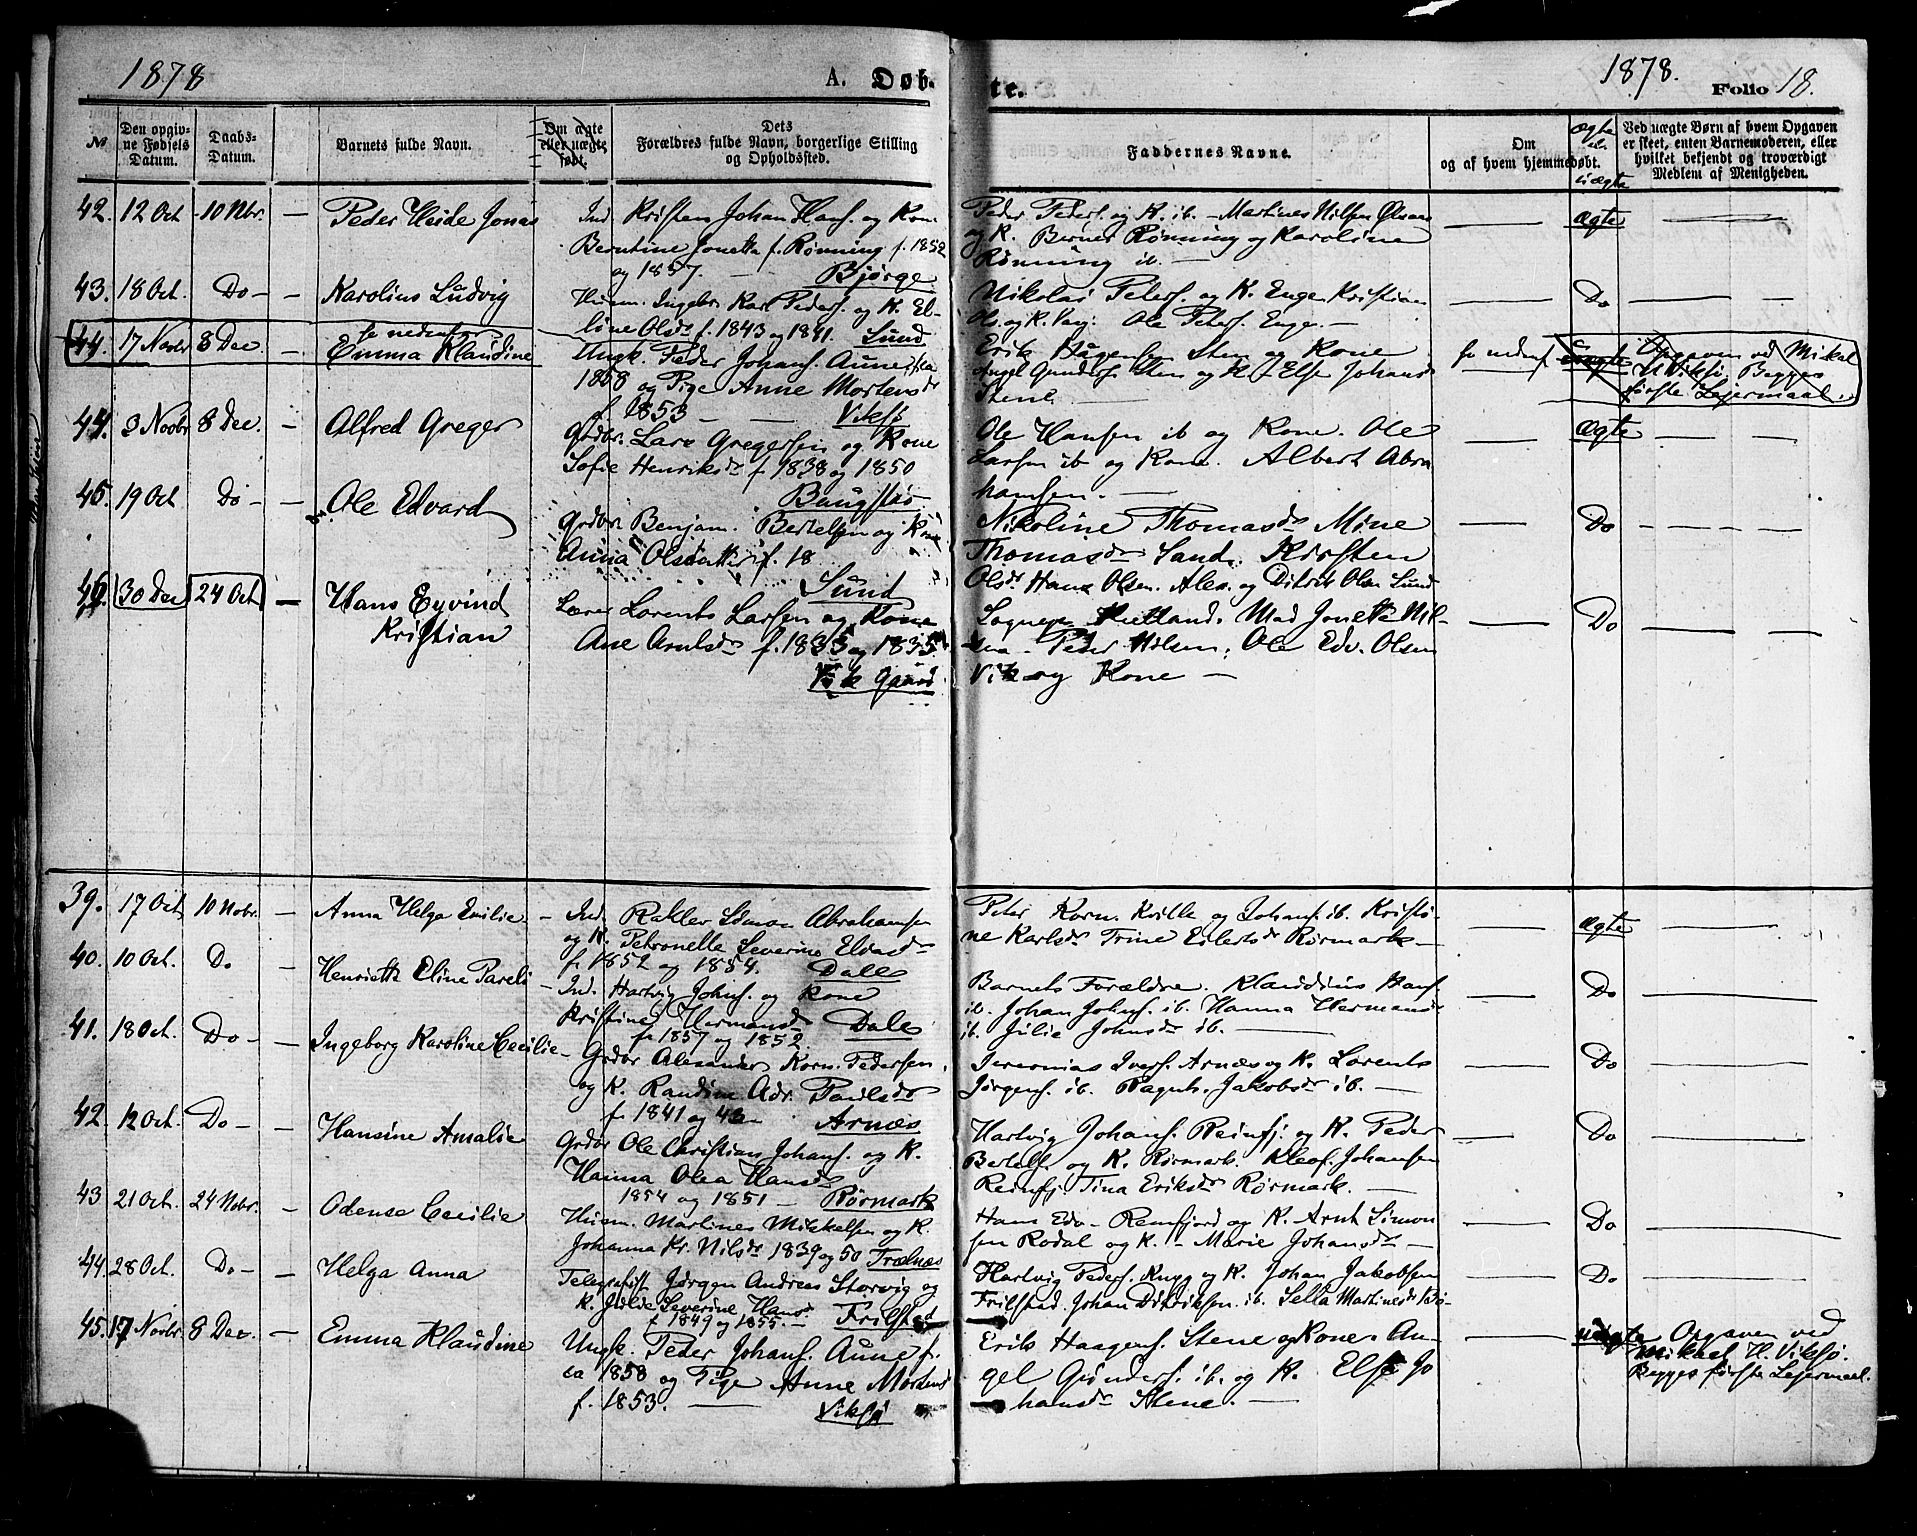 1878
A. Døb-
te.
1878.
Folio 18.
No
Den opgiv-
ne Fødsels
Datum.
Daabs-
Datum.
Barnets fulde Navn.
Om ægte
eller uægte
født.
Dets
Forældres fulde Navn, borgerlige Stilling
og Opholdssted.
Faddernes Navne.
Om
og af hvem hjemmedøbt.
ægte
el.
uægte
Ved uægte Børn af hvem Opgaven
er skeet, enten Barnemoderen, eller
hvilket bekjendt og troværdigt
Medlem af Menigheden.
42. 12 Oct 10 Nbr. — Peder Heide Jonas
Ind. Kristen Johan Hans. og Kon.
Berntine Jonetta f. Rønning f. 1852
og 1857. — Bjørge
Peder Peders. og K. ib. – Martines Nilsen
og K. Berner Rønning og Karoline
Rønning ib. —
ægte
43. 18 Oct. Do — Karolius Ludvig
Husm. Ingebr. Karl Peders. og K. El-
line Olsdr f. 1843 og 1841. Lund
Nikolai Peters. og K. Enge. Kristian
Ols. og K. ib. Ole Peters. Enge. —
Do
44. 17 Novbr 8 Dec. — se nedenf.
Emma Klaudine
Ungk. Peder Johans. Aune f. ca
1858 og Pige Anne Mortensdr
f. 1853 — Viksø
Erik Haagensen Sten og Kone
Angel Gunders. Sten og K. Else Johansdr
Stene. —
se nedenf
uægte
Opgaven ved Mikal
H Viksø. Begges
første Lejermaal.
44. 3 Novbr 8 Dec. — Alfred Greger
Grdbr. Lars Gregersen og Kone
Sofie Henriksdr f. 1838 og 1850
Bangstø
Ole Hansen ib og Kone. Ole
Larsen ib og Kone. Albert Abra
hamsen. —
ægte
45. 19 Oct Do — Ole Edvard
Grdbr. Benjam. Bertelsen og Kone
Anna Olsdatter f. 18
Sund
Nikoline Thomasdr Mine
Thomasdr Sand. Kirsten
Olsdr Hans Olsen. Alex. og Ditrik Olsn Sund
Do
46. 30 Dec 24 Oct — Hans Eyvind
Kristian
Lærer Lorents Larsen og Kone
Ane Arntsdr f. 1835 og 1835
Vik Gaard
Sognepr. Hetland. Mad Jonette Nil-
sen. Peder Nilsen. Ole Edv. Olsen
Vik og Kone —
Do
39. 17 Oct 10 Novbr. — Anna Helga Emilie
Ind. Rakler Simon Abrahamsen
og K. Petronelle Severine Eliasdr
f. 1852 og 1854. Dale
Peter Korn. Kville og Johans. ib. Kristi-
ne Karlsdr Trine Eilertsdr Rørmark —
ægte
40. 10 Oct. Do — Henriette Eline Pareli
Ind. Hartvig Johns. og Kone
Kristine Hermansdr Dale
f. 1857 og 1852.
Barnets Forældre. Klaudius Hans
ib. Johan Johns. ib. Hanna Hermansdr
ib. Julie Johnsdr ib. —
Do
41. 18 Oct. Do — Ingeborg Karoline Cecilie
Grdbr Alexander Korn. Pedersen
og K. Randine Adr. Paulsdr
f. 1841 og 43 — Arnæs
Jeremias Ivers. Arnæs og K. Lorents
Jørgens. ib. Ragnh. Jakobsdr ib. —
Do
42. 12 Oct. Do — Hansine Amalie
Grdbr Ole Christian Johans. og K.
Hanna Olea Hansdr
1854 og 1851 — Rørmark
Hartvig Johans. Reinfj. og K. Peder
Bertels. og K. Rørmark. Kleof. Johansen
Reinfj. Tina Eriksdr Rørmark. —
Do
43 21 Oct. 24 Novbr. — Odense Cecilie
Husm. Martines Mikkelsen og K.
Johanna Kr. Nilsdr 1839 og 50 Trælnæs
Hans Edv. Reinfjord og K. Arnt Simon
sen Rodal og K. – Marie Johansdr —
Do
44. 28 Oct. Do — Helga Anna
Telegrafist Jørgen Andreas Storvig og
K. Julie Severine Hansdr
f 1849 og 1855. — Frilstad
Hartvig Peders. Rugg og K. Johan Jakobsen
Frilstad. Johan Didriksen. ib. Sella Martinesdr
Do
45. 17 Novbr. 8 Dec. — Emma Klaudine
Ungk. Peder Johans. Aune f.
ca 1858 og Pige Anne Mortensdr
f. 1853. — Viksø
Erik Haagens. Stene og Kone. An-
gel Gunders. ib. og K. Else Jo
hansdr Stene. —
uægte
Opgaven ved
Mikael H. Viksø.
Begges første Lejermaal.